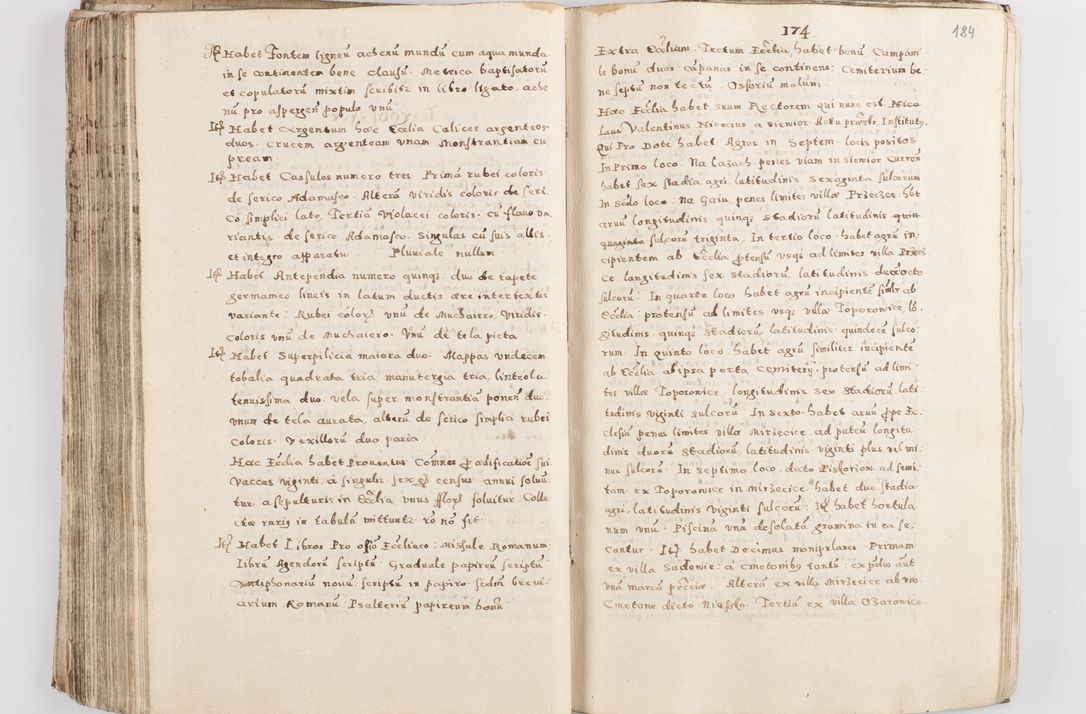 Itẽ Habet Fontem ligneũ achenũ mundũ cum aqua munda
in se continentem bene clausũ. Metrica baptisatorũ
et copulatorũ mixtim scribitꝛ in libro ligato. ache
nũ pro aspergen̄ populo vnũ
Itẽ Habet Argentum hæc Ecclia Calices argenteos
duos. Crucem argenteam vnam Monstrantiam cu
pream
Itẽ Habet Cassulas numero tres. Primã rubei coloris
de serico Adamasco. Alterã viridis coloris de seri
co simplici lato, Tertiã Violacei coloris. cũ flauo va
riantis de serico Adamasco. Singulas cũ suis albis
et integro apparatu Pluuiale nullum
Itẽ Habet Antependia numero quinqꝫ duo de tapete
germanico lineis in latum ductis ære intertextis
variante. Rubei colorꝫ vnũ de Muchaiero, Viridis
coloris vnũ de Muchaiero. Vnũ de tela picta
Itẽ Habet Superpilicia maiora duo. Mappas vndecem
tobalia quadrata tria, manutergia tria, linteola
tenuissima duo. vela super monstrantiã ponen̄ duo
vnum de tela aurata, alterũ de serico simplici rubei
coloris. Vexillorũ duo paria
Hæc Ecclia habet Prouentus Com̃nes ꝓ ædificatiõe sui
Vaccas viginti, à singulis sex gꝝ census annui soluũ
tur. a sepulturis in Ecclia vnus fflorꝫ soluitur. Colle
ctæ rariꝫ in tabulã mittuntꝛ. rõ nõ fit
Itẽ Habet Libros Pro off̃o Eccliaco: Missale Romanum
Librũ Agendorũ scriptũ. Graduale papireũ scriptũ
Antiphonariũ nouũ, scriptũ in papiro. scdm̃ breui
arium Romanũ Psalteriũ papireum bonũ
174
184
Extra Eccliam. Tectum Ecclia habet bonũ, Campani
le bonũ duas cãpanas in se continens: Cemiterium be
ne septũ non tectũ. Ossoriũ malum
Hæc Ecclia habet suum Rectorem qui nunc est. Nico
laus Valentinus Nicocius a Siewior. Rotu præsbr. Institutꝰ
Qui Pro Dote habet. Agros in Septem. locis positos
In Primo loco. Na Lazach. penes viam in Siewior Curren̄
habet sex stadia agri, latitudinis sexaginta sulcorum
In Scdo loco. Na Gaiu penes limites villæ Przeczce. hbt
aruũ longitudinis quinqꝫ stadiorũ latitudinis quin
quaginta sulcorũ triginta. In tertio loco. habet agrũ in
cipientem ab Ecclia ꝓtensũ vsqꝫ ad limites villæ Przecz
ce longitudinis sex stadiorũ, latitudinis decẽocto
sulcorũ. In quarto loco habet agrũ incipientẽ simlr ab
Ecclia. protensũ ad limites vsqꝫ villæ Toporowice, lõ
gitudinis. quinqꝫ stadiorũ latitudinis quindecẽ sulco
rum. In quinto loco. habet agrũ similiter incipientẽ
ab Ecclia ab ipsa porta Cemiterij. protensũ ad limi
tes villæ Toporowice. longitudinis sex stadiorũ, lati
tudinis viginti sulcorũ. In sexto habet aruũ ꝓpe Ec
clesiã penes limites villæ Mirzecice. ad puteũ longitu
dinis duorũ stadiorũ latitudinis. viginti plus vel mi
nus sulcorũ. In septimo loco. dicto Piskorzow. ad semi
tam. ex Toporowice in Mirzecice. habet duo stadia
agri, latitudinis viginti sulcorũ: Itẽ habet hortula
num vnũ. Piscinã vnã desolatã gramina in ea se
cantur. Itẽ habet Decimas manipulares Primam
ex villa Sadowie: à Cmetonibꝫ tantũ: ex prædio aut
vnã marcã pecciæ. Alterã ex villa Mirzecice ab vno
Cmetone dicto Niessko. Tertiã ex villa Ozarowice